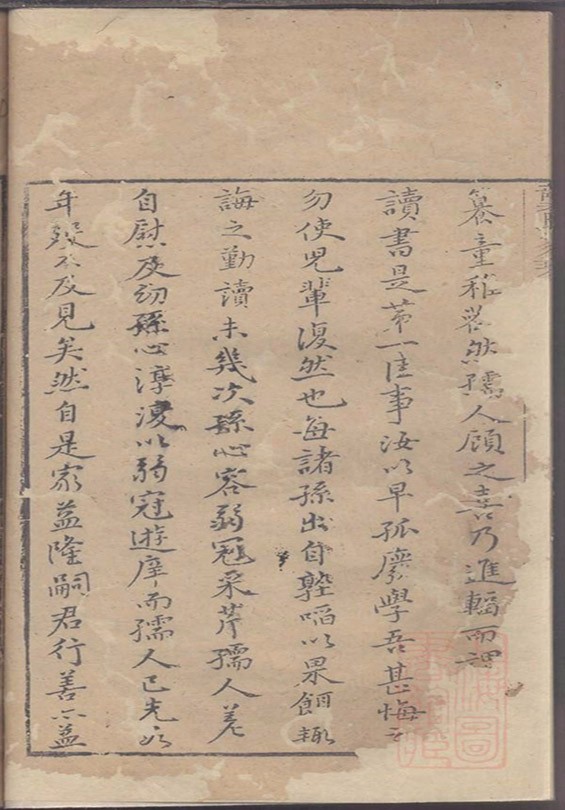 纂童稚森然孺人顧之喜乃進輻而謂
讀書是第一佳事汝以早孤廢學吾甚悔之
勿使兒輩復然也每諸孫出自塾啗以果餌輙
誨之勤讀未幾次孫心容弱冠采芹孺人差
自慰及幼孫心淳復以弱冠遊庠而孺人已先以
年歿不及見矣然自是家益隆嗣君行善亦益